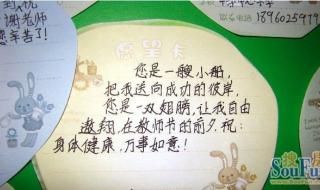 到优
谢老师
您辛苦了!
愿望卡
您是一艘小船,
把我送向成功的彼岸,
您是一双翅膀,让我自由
遨翔,在教师节的前夕,祝:
身体健康,万事如意!
联系电话 1896025919
搜房
SouFun